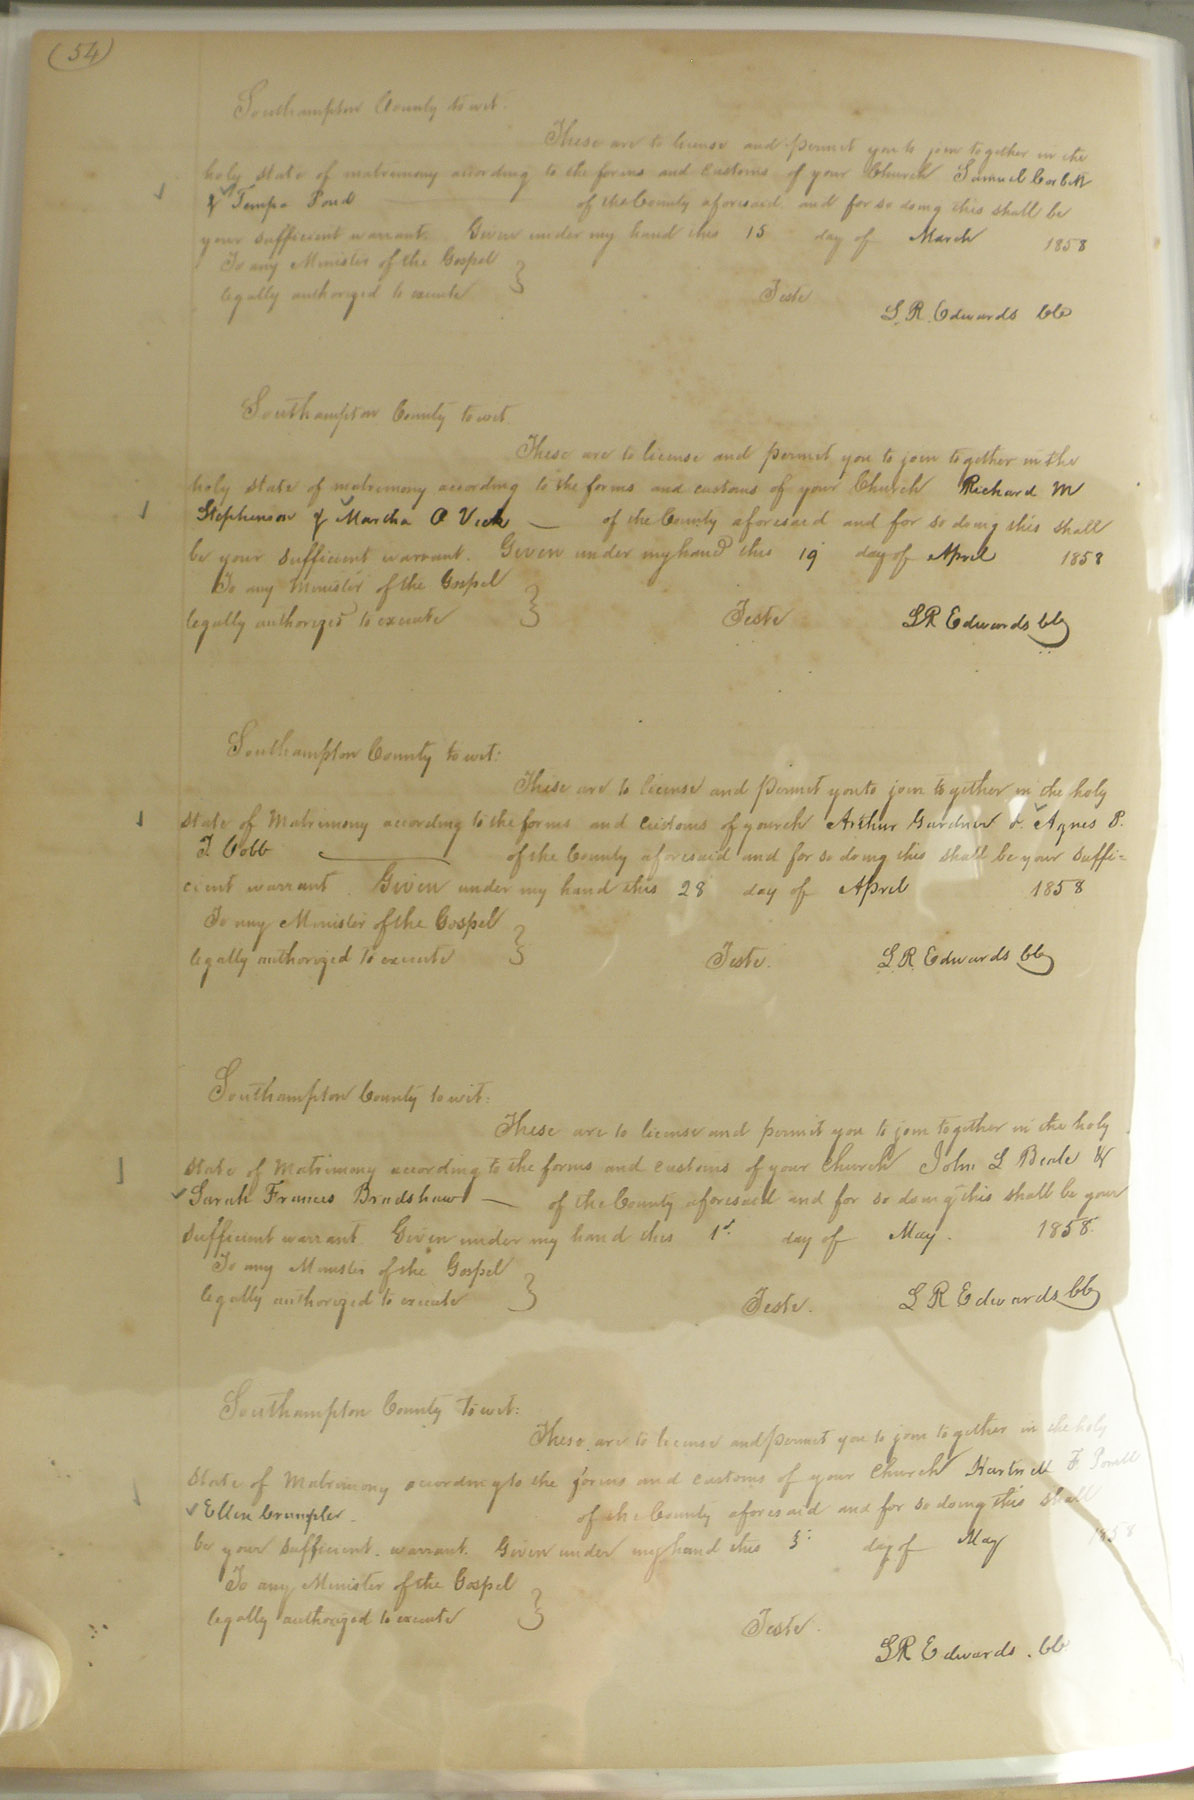 (54)
Southampton County to wit:
These are to license and permit you to join together in the
holy state of matrimony according to the forms and customs of your Church Samuel Corbitt
& Tempa Pond of the County aforesaid, and for so doing this shall be
your sufficient warrant. Given under my hand this 15 day of March 1858
To any Minister of the Gospel
legally authorized to execute
Teste
L. R. Edwards CC
Southampton County to wit
These are to license and permit you to join together in the
holy state of matrimony according to the forms and customs of your Church Richard M
Stephenson & Martha A Vick — of the County aforesaid and for so doing this shall
be your sufficient warrant. Given under my hand this 19 day of April 1858
To any Minister of the Gospel
legally authorized to execute
Teste L R Edwards CC
Southampton County to wit:
These are to license and permit you to join together in the holy
state of Matrimony according to the forms and customs of your ch Arthur Gardner & Agnes P.
T. Cobb — of the County aforesaid and for so doing this shall be your suffi=
cient warrant. Given under my hand this 28 day of April 1858
To any Minister of the Gospel
legally authorized to execute
Teste. L. R. Edwards CC
Southampton County to wit:
These are to license and permit you to join together in the holy
state of Matrimony according to the forms and customs of your Church John L Beale &
Sarah Frances Bradshaw — of the County aforesaid and for so doing this shall be your
sufficient warrant Given under my hand this 1st day of May. 1858.
To any Minister of the Gospel
legally authorized to execute
Teste. L R Edwards CC
Southampton County to wit:
These are to license and permit you to join together in the holy
state of Matrimony according to the forms and customs of your Church Hartwell F Powell
Ellen Crumpler. of the County aforesaid and for so doing this shall
be your sufficient warrant. Given under my hand this day of May 1858
To any Minister of the Gospel
legally authorized to execute
Teste.
L R Edwards. CC